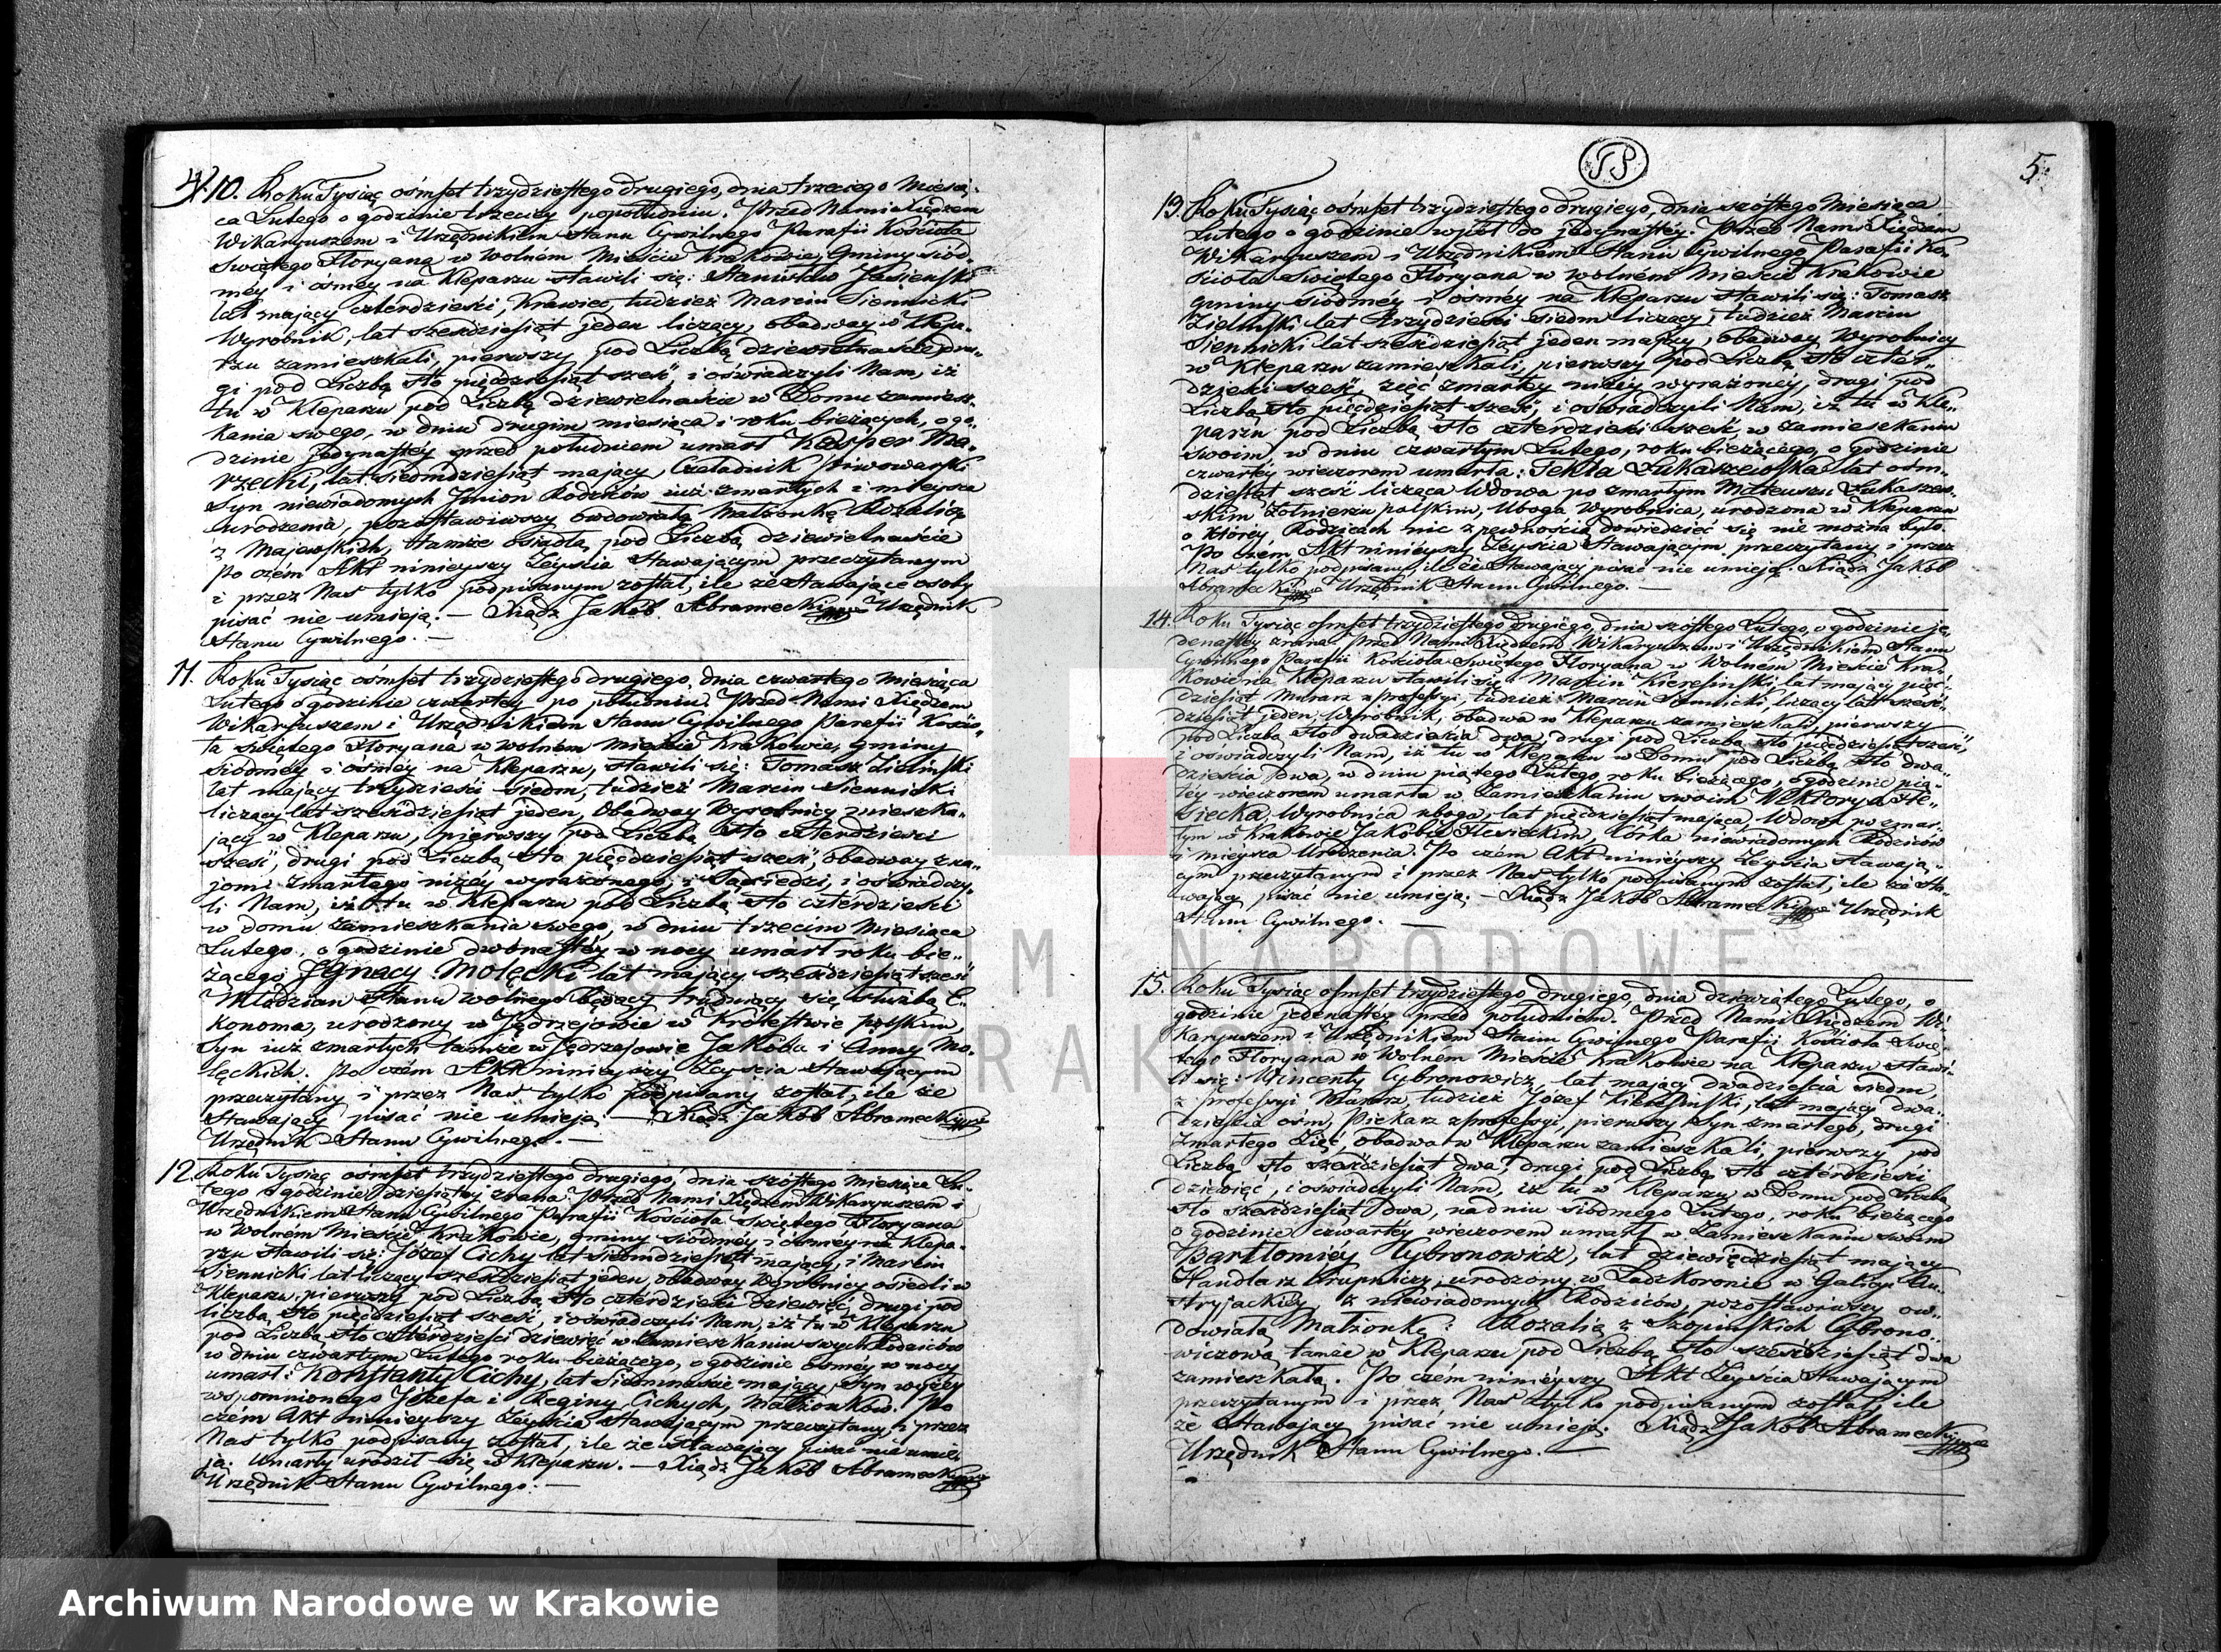 No 10. Roku Tysiąc ośmset trzydziestego drugiego, dnia trzeciego Miesią-
ca Lutego o godzinie trzeciey popołudniu. Przed Nami Xiędzem
Wikaryuszem i Urzędnikiem Stanu Cywilnego Parafii Kościoła
Swiętego Floryana w wolném Mieście Krakowie, Gminy siód-
méy i ósméy na Kleparzu stawili się: Stanisław Jasieński
lat mający czterdzieści, Krawiec, tudzież Marcin Siennicki
Wyrobnik, lat sześćdziesiąt jeden liczący, obadway w Klepa-
rzu zamieszkali, pierwszy pod Liczbą dziewietnaście, dru-
gi pod Liczbą sto pięćdziesiąt sześć, i oświadczyli Nam, iż
tu w Kleparzu pod Liczbą dziewietnaście w Domu zamiesz-
kania swego, w dniu drugim miesiąca i roku bieżących, o go-
dzinie jedynastéy przed południem umarł Kasper Ma-
rzecki, lat siedmdziesiąt mający, Czeladnik piwowarski
Syn niewiadomych Imion Rodziców iuż zmarłych i mieysca
urodzenia, pozostawiwszy owdowiałą Małżonkę Rozalią
z Majewskich, tamże osiadłą pod Liczbą dziewietnaście
Po czém Akt ninieyszy Zeyścia Stawającym przeczytanym
i przez Nas tylko podpisanym został, ile że stawające osoby
pisać nie umieją. — Xiądz Jakob Abramecki Urzędnik
Stanu Cywilnego. —
11. Roku Tysiąc ośmset trzydziestego drugiego, dnia czwartego miesiąca
Lutego o godzinie czwartey po południu. Przed Nami Xiędzem
Wikaryuszem i Urzędnikiem Stanu Cywilnego Parafii Kościo-
ła swiętego Floryana w wolném Mieście Krakowie, gminy
siódméy i ósméy na Kleparzu, stawili się: Tomasz Zieliński
lat mający trzydzieści siedm, tudzież Marcin Siennicki
liczący lat sześćdziesiąt jeden, Obadway Wyrobnicy mieszka-
jący w Kleparzu, pierwszy pod Liczbą sto czterdzieści
sześć, drugi pod Liczbą sto pięćdziesiąt sześć, obadway zna-
jomi zmarłego niżéy wyrażonego, i Sąsiedzi, i oświadczy-
li Nam, iż tu w Kleparzu pod Liczbą sto czterdzieści
w domu zamieszkania swego, w dniu trzecim Miesiąca
Lutego, o godzinie dwónastéy w nocy umarł roku bie-
żącego Ignacy Molęcki lat mający sześćdziesiąt sześć
Młodzian Stanu wolnego będący trudniący się służbą E-
konoma, urodzony w Jędrzejowie w Królestwie polskim,
Syn iuż zmarłych tamże w Jędrzejowie Jakóba i Anny Mo-
lęckich. Po czém Akt ninieyszy Zeyścia Stawającym
przeczytany i przez Nas tylko podpisany został, ile że
Stawający pisać nie umieją. — Xiądz Jakób Abramecki
Urzędnik Stanu Cywilnego. —
12. Roku Tysiąc ośmset trzydziestego drugiego, dnia szóstego miesiąca Lu-
tego o godzinie dziesiątey zrana. Przed Nami Xiędzem Wikaryuszem i
Urzędnikiem Stanu Cywilnego Parafii Kościoła Swiętego Floryana
w Wolném Mieście Krakowie, gminy siódméy i ósméy na Klepa-
rzu stawili się: Józef Cichy lat siedmdziesiąt mający, i Marcin
Siennicki lat liczący sześćdziesiąt jeden, obadway Wyrobnicy osiedli w
Kleparzu, pierwszy pod Liczbą sto czterdzieści dziewięć, drugi pod
liczbą sto pięćdziesiąt sześć, i oświadczyli Nam, iż tu w Kleparzu
pod Liczbą sto czterdzieści dziewięć w Zamieszkaniu swych Rodziców
w dniu czwartym Lutego roku bieżącego, o godzinie ósméy w nocy
umarł: Konstanty Cichy, lat Siedmnaście mający, Syn wyżéy
wspomnionego Józefa i Reginy Cichych, Małżonków. Po
czém Akt ninieyszy Zeyścia Stawającym przeczytany i przez
Nas tylko podpisany został, ile że stawający pisać nie umie-
ją. Umarły urodził się w Kleparzu. — Xiądz Jakób Abramecki
Urzędnik Stanu Cywilnego. —
5
13. Roku Tysiąc ośmset trzydziestego drugiego, dnia szóstego Miesiąca
Lutego o godzinie wpół do jedynastey. Przed Nami Xiędzem
Wikaryuszem i Urzędnikiem Stanu Cywilnego Parafii Ko-
ścioła Swiętego Floryana w wolném Mieście Krakowie
gminy siódméy i ósméy na Kleparzu stawili się: Tomasz
Zieliński lat trzydzieści siedm liczący, tudzież Marcin
Siennicki lat sześćdziesiąt jeden mający, obadway Wyrobnicy
w Kleparzu zamieszkali, pierwszy pod Liczbą sto czter-
dzieści sześć, zięć zmarłey niżéy wyrażonéy, drugi pod
Liczbą sto pięćdziesiąt sześć, i oświadczyli Nam, iż tu w Kle-
parzu pod Liczbą sto czterdzieści sześć, w zamieszkaniu
swoim, w dniu czwartym Lutego, roku bieżącego, o godzinie
czwartéy wieczorem umarła: Tekla Łukaszewska lat ośm-
dziesiąt sześć licząca Wdowa po zmarłym Mateuszu Łukaszew-
skim Żołnierzu polskim, Uboga Wyrobnica, urodzona w Kleparzu
o któréy Rodzicach nic z pewnością dowiedzieć się nie można było.
Po czem Akt ninieyszy Zeyścia Stawającym przeczytany i przez
Nas tylko podpisany, ile że Stawający pisać nie umieją. Xiądz Jakób
Abramecki Urzędnik Stanu Cywilnego. —
14. Roku Tysiąc ośmset trzydziestego drugiego, dnia szóstego Lutego, o godzinie je-
denastéy zrana Przed Nami Xiędzem Wikaryuszem i Urzędnikiem Stanu
Cywilnego Parafii Kościoła Swiętego Floryana w Wolném Mieście Kra-
kowie na Kleparzu stawili się Marcin Kieresiński, lat mający pięć-
dziesiąt Murarz z professyi, tudzież Marcin Siennicki, liczący lat sześć-
dziesiąt jeden, Wyrobnik, obadwa w Kleparzu zamieszkali, pierwszy
pod Liczbą sto dwadzieścia dwa, drugi pod Liczbą sto pięćdziesiąt sześć,
i oświadczyli Nam, iż tu w Kleparzu w Domu pod Liczbą sto dwa-
dzieścia dwa, w dniu piątego Lutego, roku bieżącego, o godzinie pią-
téy wieczorem umarła w Zamieszkaniu swoim Wiktorya Ple-
siecka, Wyrobnica uboga, lat pięćdziesiąt mająca, Wdowa po zmar-
łym w Krakowie Jakóbie Plesieckim, Córka niewiadomych Rodziców
i mieysca Urodzenia. Po czém Akt ninieyszy Zeyścia stawają-
cym przeczytanym i przez Nas tylko podpisanym został, ile że sta-
wający pisać nie umieją. — Xiądz Jakób Abramecki Urzędnik
Stanu Cywilnego. —
15. Roku Tysiąc ośmset trzydziestego drugiego, dnia dziewiątego Lutego, o
godzinie jedenastéy przed południem. Przed Nami Xiędzem Wi-
karyuszem i Urzędnikiem Stanu Cywilnego Parafii Kościoła Swię-
tego Floryana w Wolném Mieście Krakowie na Kleparzu stawi-
li się: Wincenty Cybronowicz, lat mający dwadzieścia siedm,
z professyi Murarz, tudzież Józef Kieresiński, lat mający dwa-
dzieścia ośm, Piekarz z professyi, pierwszy Syn zmarłego, drugi
zmarłego Zięć, obadwa w Kleparzu zamieszkali, pierwszy pod
Liczbą sto sześćdziesiąt dwa, drugi pod Liczbą sto czterdzieści
dziewięć, i oświadczyli Nam, iż tu w Kleparzu w Domu pod Liczbą
sto sześćdziesiąt dwa, na dniu siódmego Lutego, roku bieżącego
o godzinie czwartéy wieczorem umarł w Zamieszkaniu swoim
Bartłomiéy Cybronowicz, lat dziewięćdziesiąt mający
Handlarz Krupniczy, urodzony w Ladzkoronie w Galicyi Au-
stryjackiéy, z niewiadomych Rodziców, pozostawiwszy ow-
dowiałą Małżonkę: Rozalią z Szopińskich Cybrono-
wiczową tamże w Kleparzu pod Liczbą sto sześćdziesiąt dwa
zamieszkałą. Po czém ninieyszy Akt Zeyścia Stawającym
przeczytanym i przez Nas tylko podpisanym został, ile
że Stawający pisać nie umieją. Xiądz Jakób Abramecki
Urzędnik Stanu Cywilnego. —
M NARODOWE
KRAKOW
Archiwum Narodowe w Krakowie